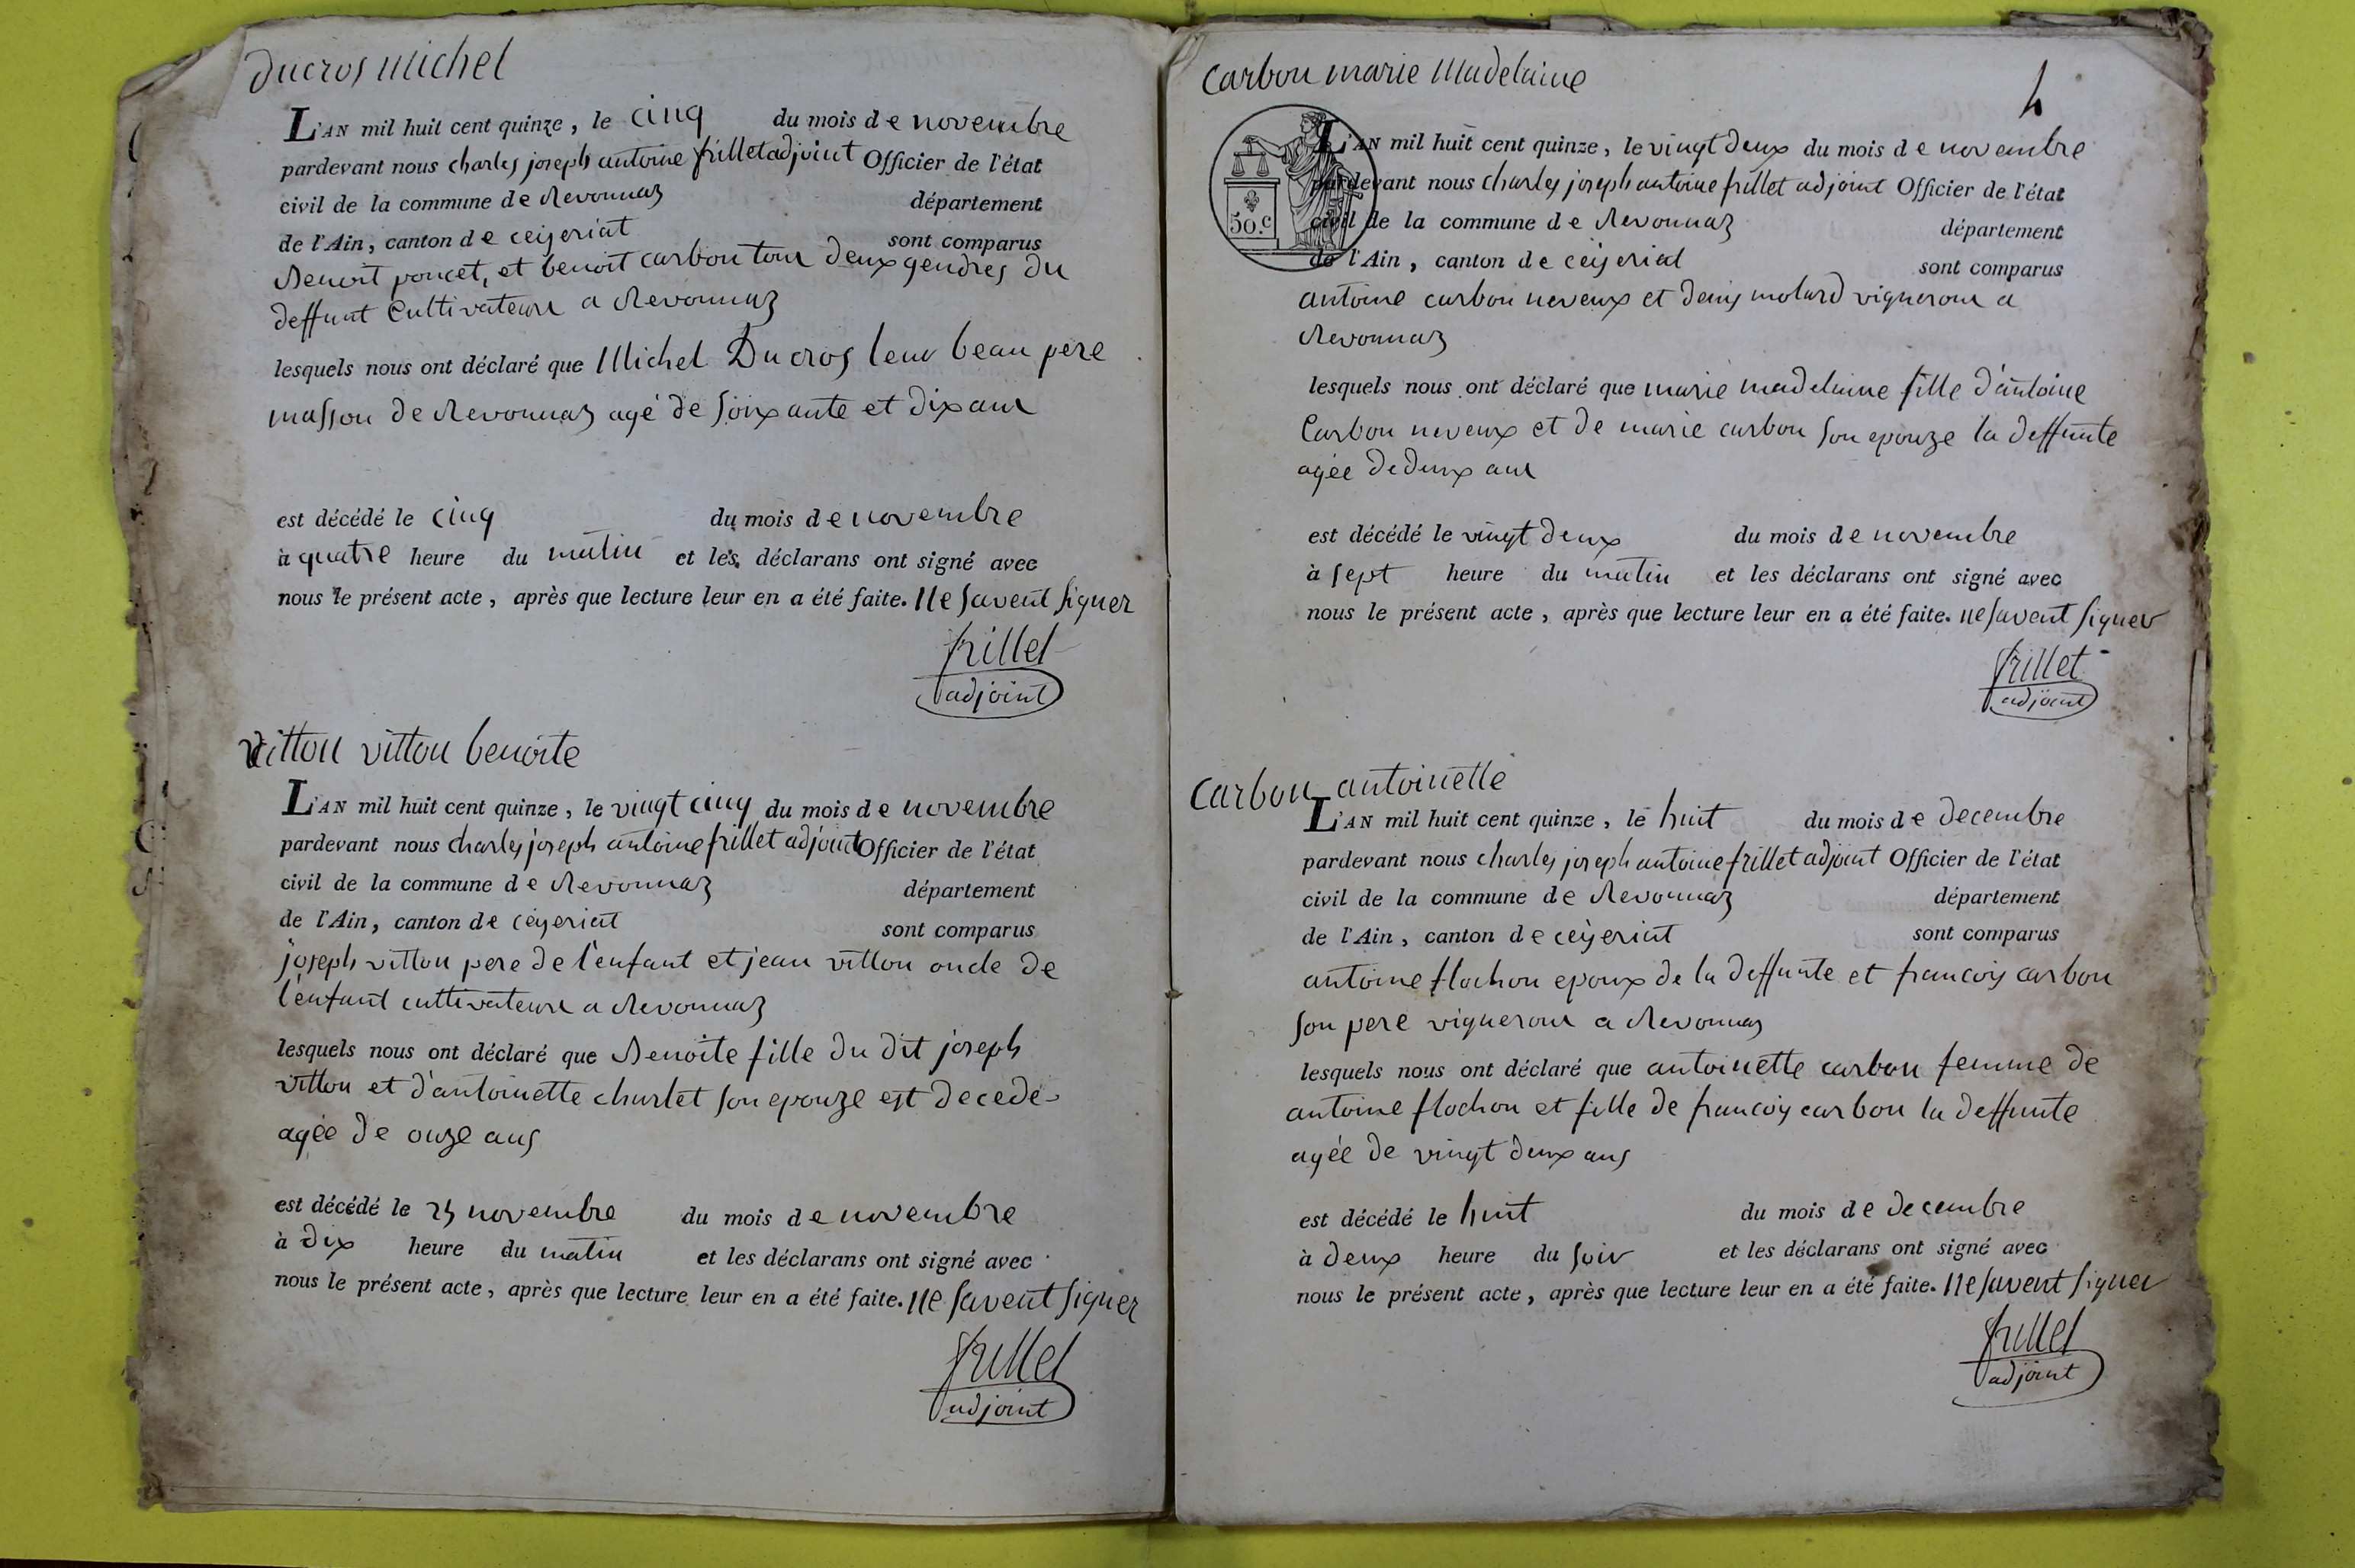 Ducros Michel
L'AN mil huit cent quinze, le cinq du mois de novembre
pardevant nous charles joseph antoine frillet adjoint Officier de l'état
civil de la commune de Revonnaz département
de l'Ain, canton de ceÿeriat sont comparus
Benoit poncet, et benoit carbon tous deux gendres du
deffunt Cultivateurs a Revonnaz
lesquels nous ont déclaré que Michel Ducros leur beau pere
masson de Revonnaz agé de soixante et dix ans
est décédé le cinq du mois de novembre
à quatre heure du matin et les déclarans ont signé avec
nous le présent acte, après que lecture leur en a été faite. Ne savent signer
frillet
adjoint
vitton vitton benoite
L'AN mil huit cent quinze, le vingt cinq du mois de novembre
pardevant nous charles joseph antoine frillet adjoint Officier de l'état
civil de la commune de Revonnaz département
de l'Ain, canton de ceÿeriat sont comparus
joseph vitton pere de l'enfant et jean vitton oncle de
l'enfant cultivateurs a Revonnaz
lesquels nous ont déclaré que Benoite fille du dit joseph
vitton et d'antoinette charlet son epouze est decedé
agée de onze ans
est décédé le 25 novembre du mois de novembre
à dix heure du matin et les déclarans ont signé avec
nous le présent acte, après que lecture leur en a été faite. Ne savent signer
frillet
adjoint
carbon marie Madelaine
4
50.c
L'AN mil huit cent quinze, le vingt deux du mois de novembre
pardevant nous charles joseph antoine frillet adjoint Officier de l'état
civil de la commune de Revonnaz département
de l'Ain, canton de ceÿeriat sont comparus
antoine carbon neveux et denis molard vignerons a
Revonnaz
lesquels nous ont déclaré que marie madelaine fille d'antoine
Carbon neveux et de marie carbon son epouze la deffunte
agée de deux ans
est décédé le vingt deux du mois de novembre
à sept heure du matin et les déclarans ont signé avec
nous le présent acte, après que lecture leur en a été faite. ne savent signer
frillet
adjoint
carbon antoinette
L'AN mil huit cent quinze, le huit du mois de decembre
pardevant nous charles joseph antoine frillet adjoint Officier de l'état
civil de la commune de Revonnaz département
de l'Ain, canton de ceÿeriat sont comparus
antoine flochon epoux de la deffunte et francois carbon
son pere vignerons a Revonnaz
lesquels nous ont déclaré que antoinette carbon femme de
antoine flochon et fille de francois carbon la deffunte
agée de vingt deux ans
est décédé le huit du mois de decembre
à deux heure du soir et les déclarans ont signé avec
nous le présent acte, après que lecture leur en a été faite. Ne savent signer
frillet
adjoint